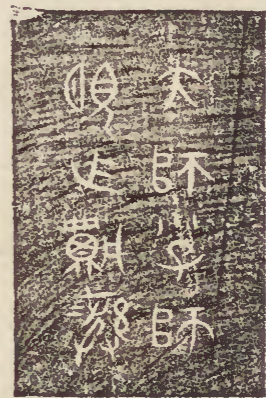 大師小子師
朢乍䵼彝